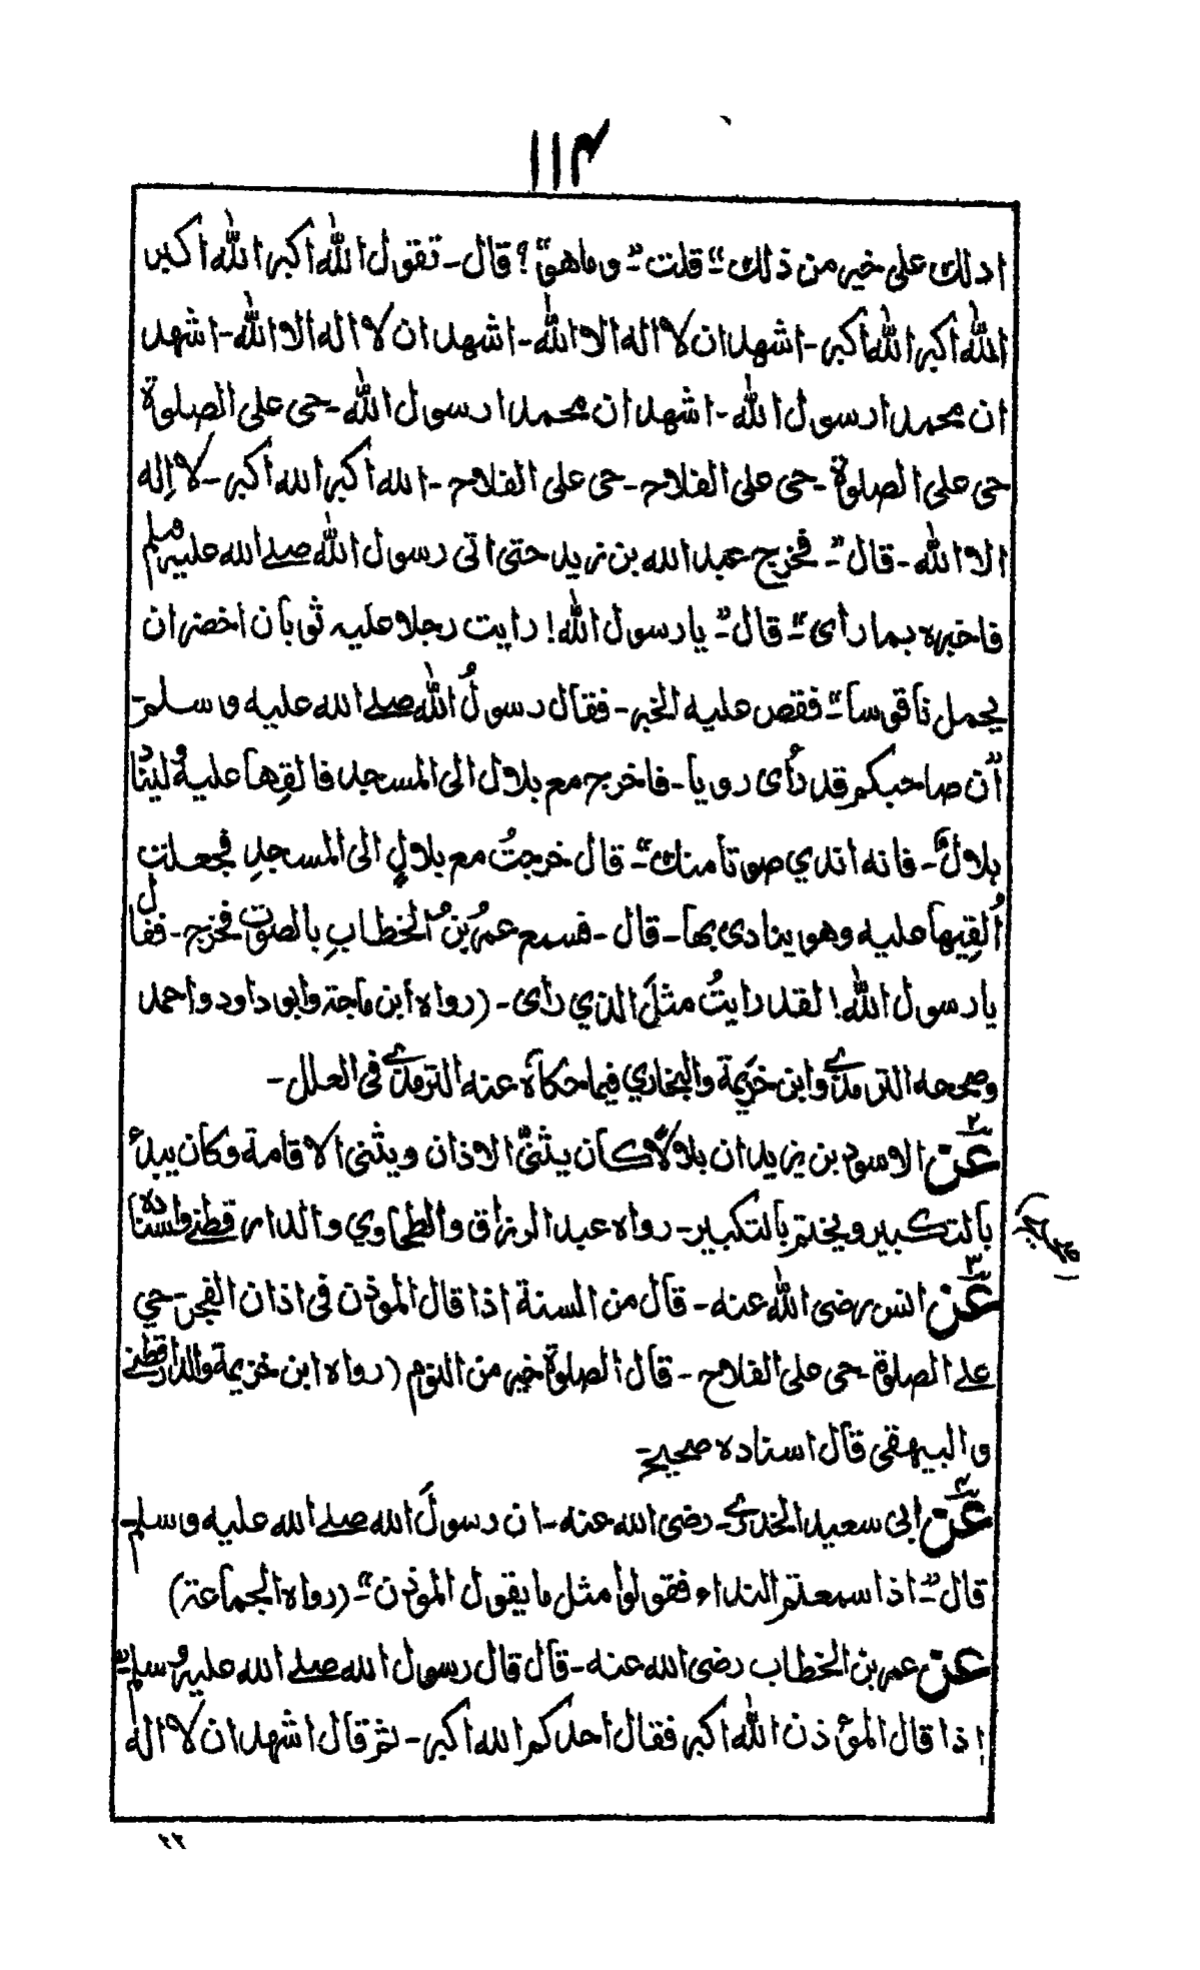 ۱۱۴
ادلك على خير من ذلك“ قلت ”وما هو“؟ قال۔ تقول اللّٰه اكبر اللّٰه اكبر
اللّٰه اكبر اللّٰه اكبر۔ اشهد ان لا اله الا اللّٰه۔ اشهد ان لا اله الا اللّٰه۔ اشهد
ان محمدا رسول اللّٰه۔ اشهد ان محمدا رسول اللّٰه۔ حى على الصلوة
حى على الصلوة۔ حى على الفلاح۔ حى على الفلاح۔ الله اكبر الله اكبر۔ لا إله
الا اللّٰه۔ قال ”فخرج عبد الله بن زيد حتى اتى رسول اللّٰه صلے الله عليه وسلم
فاخبره بما رأى“ قال ”يا رسول اللّٰه! رايت رجلا عليه ثوبان اخضران
يحمل ناقوسا“ فقص عليه الخبر۔ فقال رسولُ اللّٰه صلے الله عليه وسلم۔
أن صاحبكم قد رأى رويا۔ فاخرج مع بلال الى المسجد فالقِها عليه وليناد
بلال۔ فانه اندي صوتا منك“ قال خرجتُ مع بلالٍ الى المسجدِ فجعلت
أُلقِيها عليه وهو ينادى بها۔ قال۔ فسمع عمرُ بنُ الخطابِ بالصوت فخرج۔ فقال
يا رسول اللّٰه! لقد رايتُ مثلَ الذي راى۔ (رواه ابن ماجة وابو داود واحمد
وصححه الترمذي وابن خزيمة والبخاري فيما حكاه عنه الترمذي فى العلل۔
۲ عن الاسود بن يزيد ان بلالاً كان يثنّى الاذان ويثنى الاقامة وكان يبدأ
بالتكبير ويختم بالتكبير۔ رواه عبد الرزاق والطحاوي والدار قطنے واسناده
صحيح
۳ عن انس رضى اللّٰه عنه۔ قال من السنة اذا قال المؤذن فى اذان الفجر۔ حي
علے الصلوة۔ حى على الفلاح۔ قال الصلوة خير من النوم (رواه ابن خزيمة والدارقطنے
والبيهقى قال اسناده صحيح۔
۴ عن ابى سعيد الخدرى۔ رضى الله عنه۔ ان رسولَ الله صلے الله عليه وسلم۔
قال ”اذا سمعتم النداء فقولوا مثل ما يقول المؤذن“ (رواه الجماعة)
عن عمر بن الخطاب رضى الله عنه۔ قال قال رسول الله صلے الله عليه وسلم”
اذا قال المؤذن اللّٰه اكبر فقال احدكم الله اكبر۔ ثم قال اشهد ان لا اله
۲۲